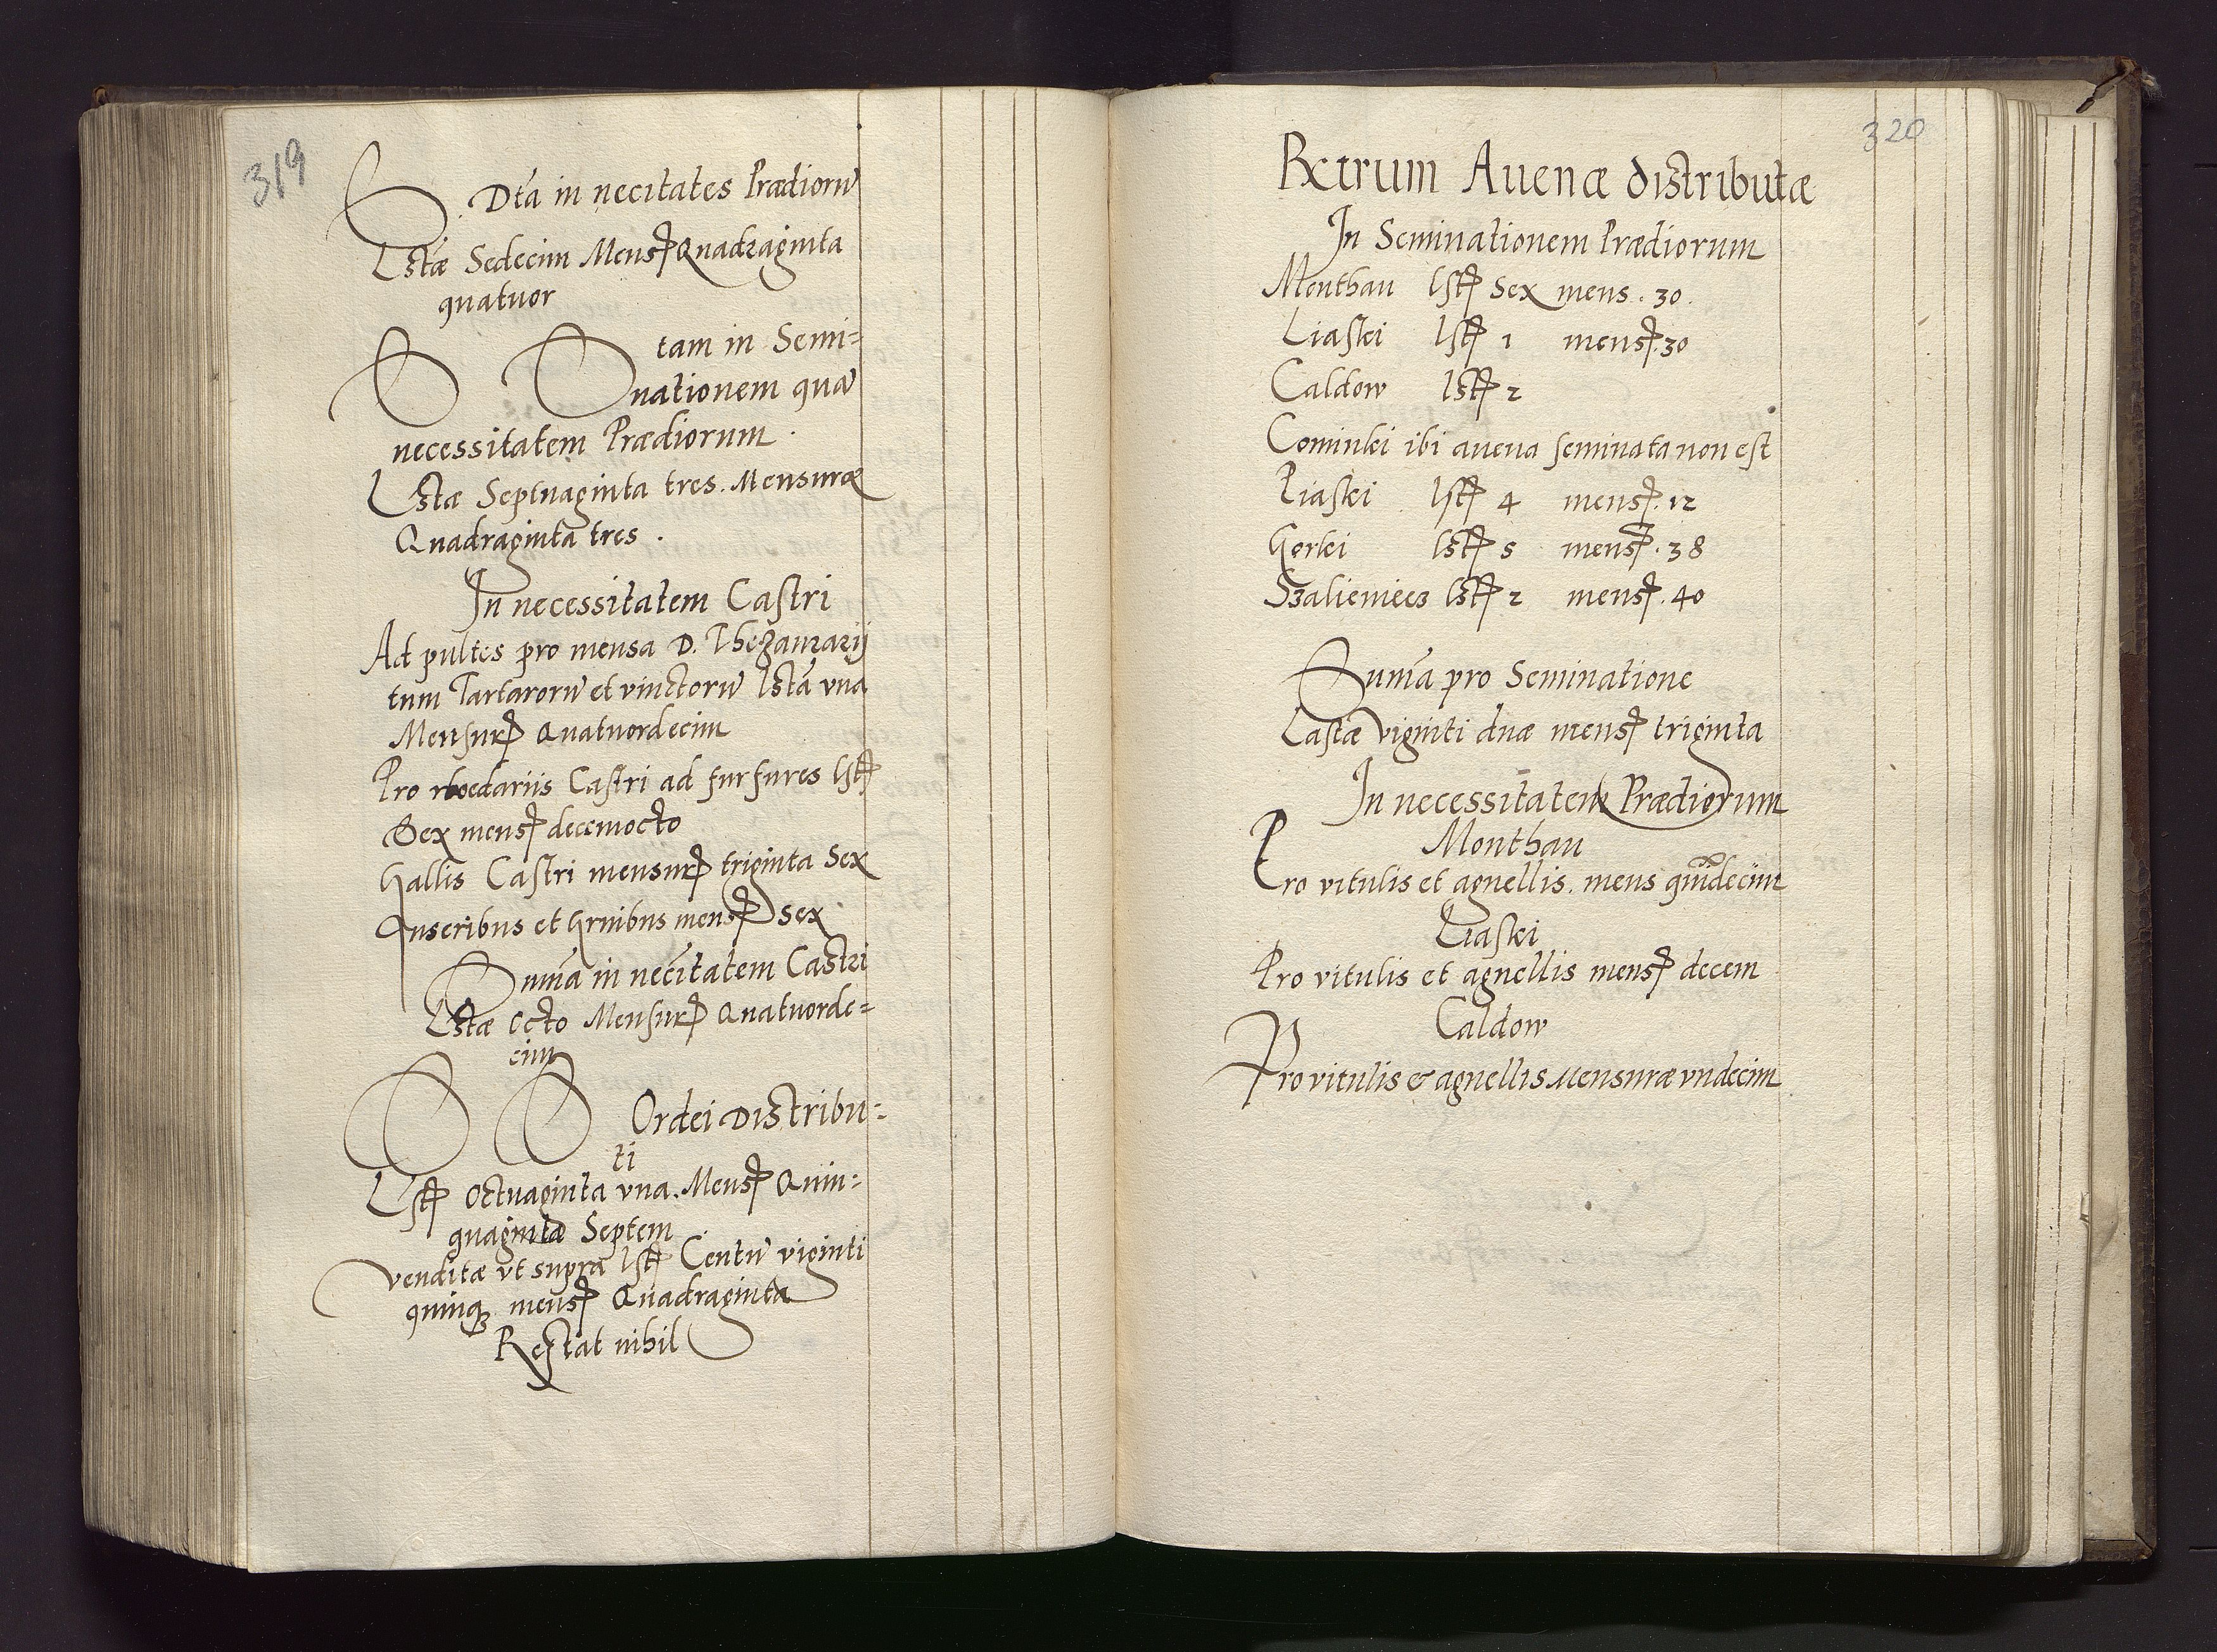 319
S Dta in necitates Prædioru
Lstæ Sedecim Mens Quadraginta
quatuor
S S tam in Semi=
nationem qua
necessitatem Prædiorum.
Lstæ Septuaginta tres. Mensuræ
Quadraginta tres.
In necessitatem Castri
Ad pultes pro mensa D. Thezaurarij
tum Tartaroru et vinctoru lsta vna
Mensur Quatuordecim
Pro rhoedariis Castri ad furfures lst
Sex mens decemocto
Gallis Castri mensur triginta Sex
Anseribus et Gruibus mens sex
Suma in necitatem Castri
Lstæ octo Mensur Quatuorde=
cim
S S Ordei Distribu=
ti
Lst Octuaginta vna. Mens Quin=
quaginta Septem
venditæ vt supra lst Centu viginti
quinq mens Quadraginta
Restat nihil
320
Rxtrum Auenæ distributæ
In Seminationem Prædiorum
Monthau lst Sex mens. 30.
Liaski lst 1 mens. 30
Caldow lst 2
Cominki ibi auena seminata non est
Piaski lst 4 mens. 12
Gorki lst 5 mens. 38
Szalieniecz lst 2 mens. 40
Suma pro Seminatione
Lastæ viginti duæ mens triginta
In necessitatem Prædiorum
Monthau
Pro vitulis et agnellis. mens quindecim
Liaski
Pro vitulis et agnellis mens decem
Caldow
Pro vitulis & agnellis Mensuræ vndecim